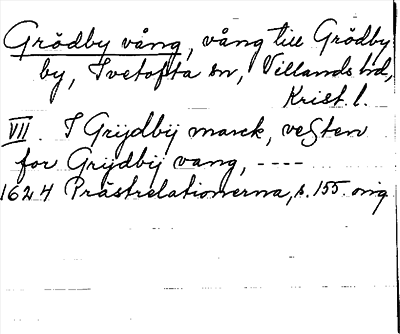 Grödby vång, vång till Grödby
by, Ivetofta sn, Villands hd,
Krist. l.
VII. I Grijdbij marck, veßten
for Grijdbij vang, ----
1624 Prästrelationerna, s. 155. orig